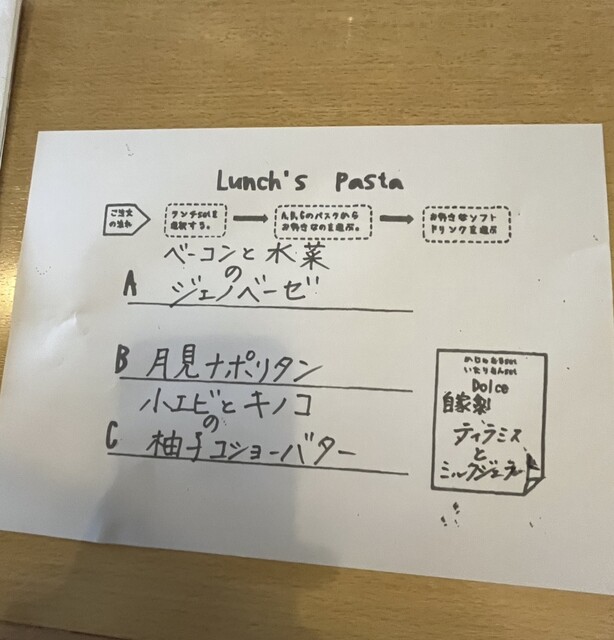 Lunch's Pasta
ご注文
の流れ
ランチsetを
選択する。
A,B,Cのパスタから
お好きなのを選ぶ。
お好きなソフト
ドリンクを選ぶ
A ベーコンと水菜
の
ジェノベーゼ
B 月見ナポリタン
小エビとキノコ
の
C 柚子コショーバター
かじゅあるset
いたりあんset
Dolce
自家製
ティラミス
と
ミルクジェラート